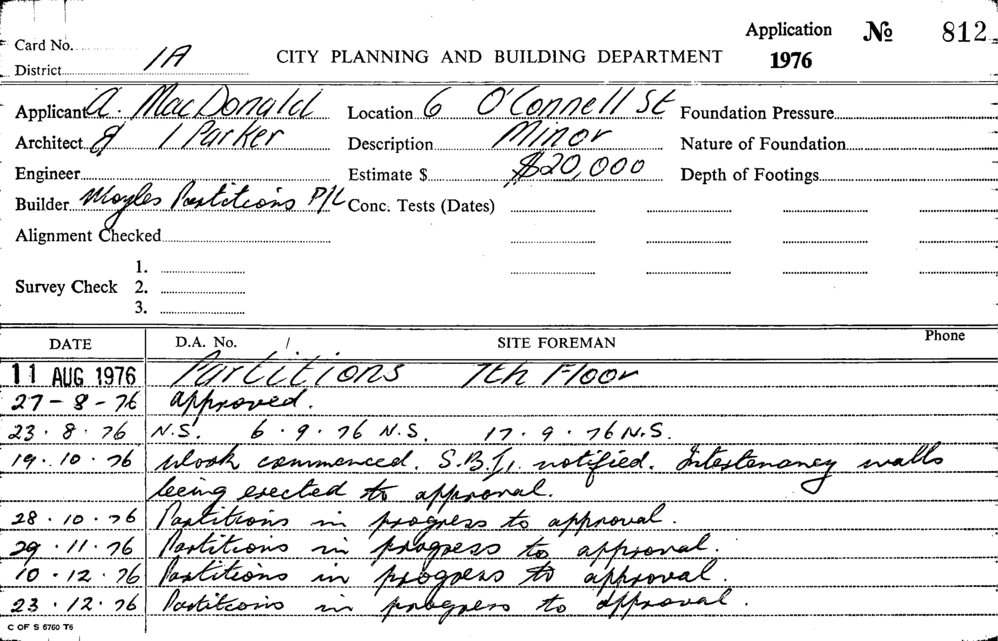 Application No 812
Card No.
District 1A CITY PLANNING AND BUILDING DEPARTMENT 1976
Applicant A. MacDonald Location 6 O'Connell St Foundation Pressure
Architect & I Parker Description Minor Nature of Foundation
Engineer Estimate $ $20,000 Depth of Footings
Builder Moyles Partitions P/L Conc. Tests (Dates)
Alignment Checked
1.
Survey Check 2.
3.
DATE D.A. No. / SITE FOREMAN Phone
11 AUG 1976 Partitions 7th Floor
27-8-76 approved.
23.8.76 N.S. 6.9.76 N.S. 17.9.76 N.S.
19.10.76 Work commenced. S.B.I. notified. Intertenancy walls
being erected to approval.
28.10.76 Partitions in progress to approval.
29.11.76 Partitions in progress to approval.
10.12.76 Partitions in progress to approval.
23.12.76 Partitions in progress to approval.
C OF S 5760 T6